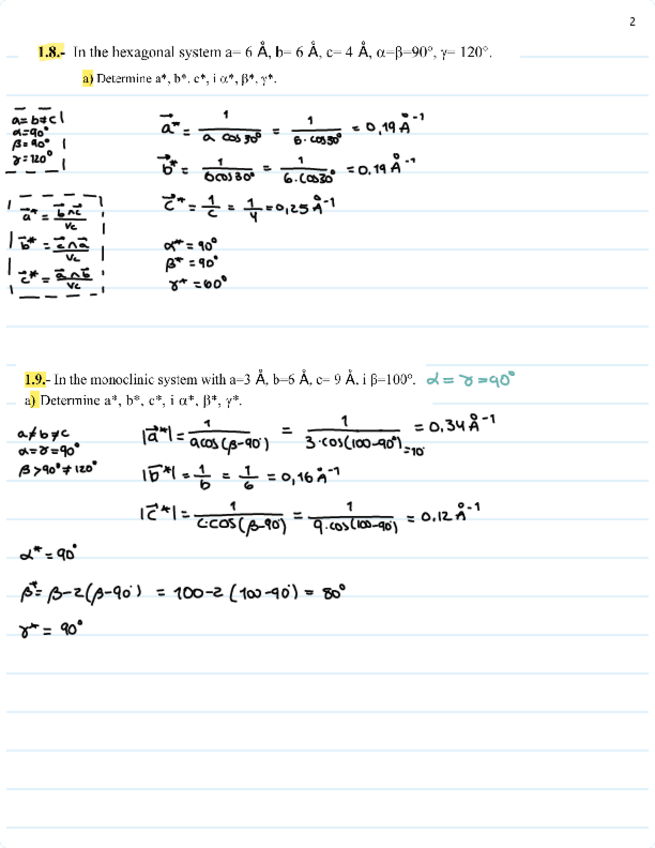 2
1.8.- In the hexagonal system a= 6 Å, b= 6 Å, c= 4 Å, α=β=90°, γ= 120°.
a) Determine a*, b*, c*, i α*, β*, γ*.
a = b ≠ c
α = 90°
β = 90°
γ = 120°
a* = 1 / (a cos 30°) = 1 / (6 · cos 30°) = 0,19 Å⁻¹
b* = 1 / (b cos 30°) = 1 / (6 · cos 30°) = 0,19 Å⁻¹
c* = 1/c = 1/4 = 0,25 Å⁻¹
a* = b ∧ c / Vc
b* = c ∧ a / Vc
c* = a ∧ b / Vc
α* = 90°
β* = 90°
γ* = 60°
1.9.- In the monoclinic system with a=3 Å, b=6 Å, c= 9 Å, i β=100°. α = γ = 90°
a) Determine a*, b*, c*, i α*, β*, γ*.
a ≠ b ≠ c
α = γ = 90°
β > 90° ≠ 120°
|a*| = 1 / (a cos (β-90°)) = 1 / (3 · cos (100-90°)) = 0,34 Å⁻¹
=10
|b*| = 1/b = 1/6 = 0,16 Å⁻¹
|c*| = 1 / (c · cos (β-90°)) = 1 / (9 · cos (100-90°)) = 0,12 Å⁻¹
α* = 90°
β* = β - 2 (β-90°) = 100 - 2 (100-90°) = 80°
γ* = 90°